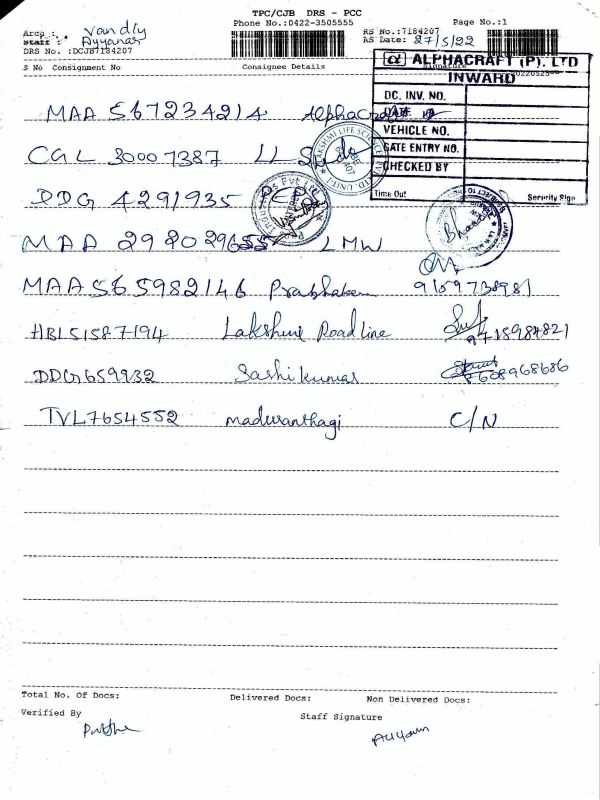 TPC/CJB DRS - PCC
Phone No.:0422-3505555 Page No.:1
Area : Vandly RS No.:7184207
Staff : Ayyanar RS Date: 27/5/22
DRS No. :DCJB7184207
S No Consignment No Consignee Details Signature
ALPHACRAFT (P). LTD
INWARD
DC. INV. NO.
DATE
VEHICLE NO.
GATE ENTRY NO.
CHECKED BY
Time Out Security Sign
MAA 567234214 Alphacraft
CGL 30007387 LL
DDG 4291935
MAA 298029655 LMW
MAA565982146 Prabhakaran 9159738981
HBL51587194 Lakshmi Roadline 9715984821
DDG659932 Sashikumar 8608968686
TVL7654552 maduranthagi C/N
Total No. Of Docs: Delivered Docs: Non Delivered Docs:
Verified By
Staff Signature